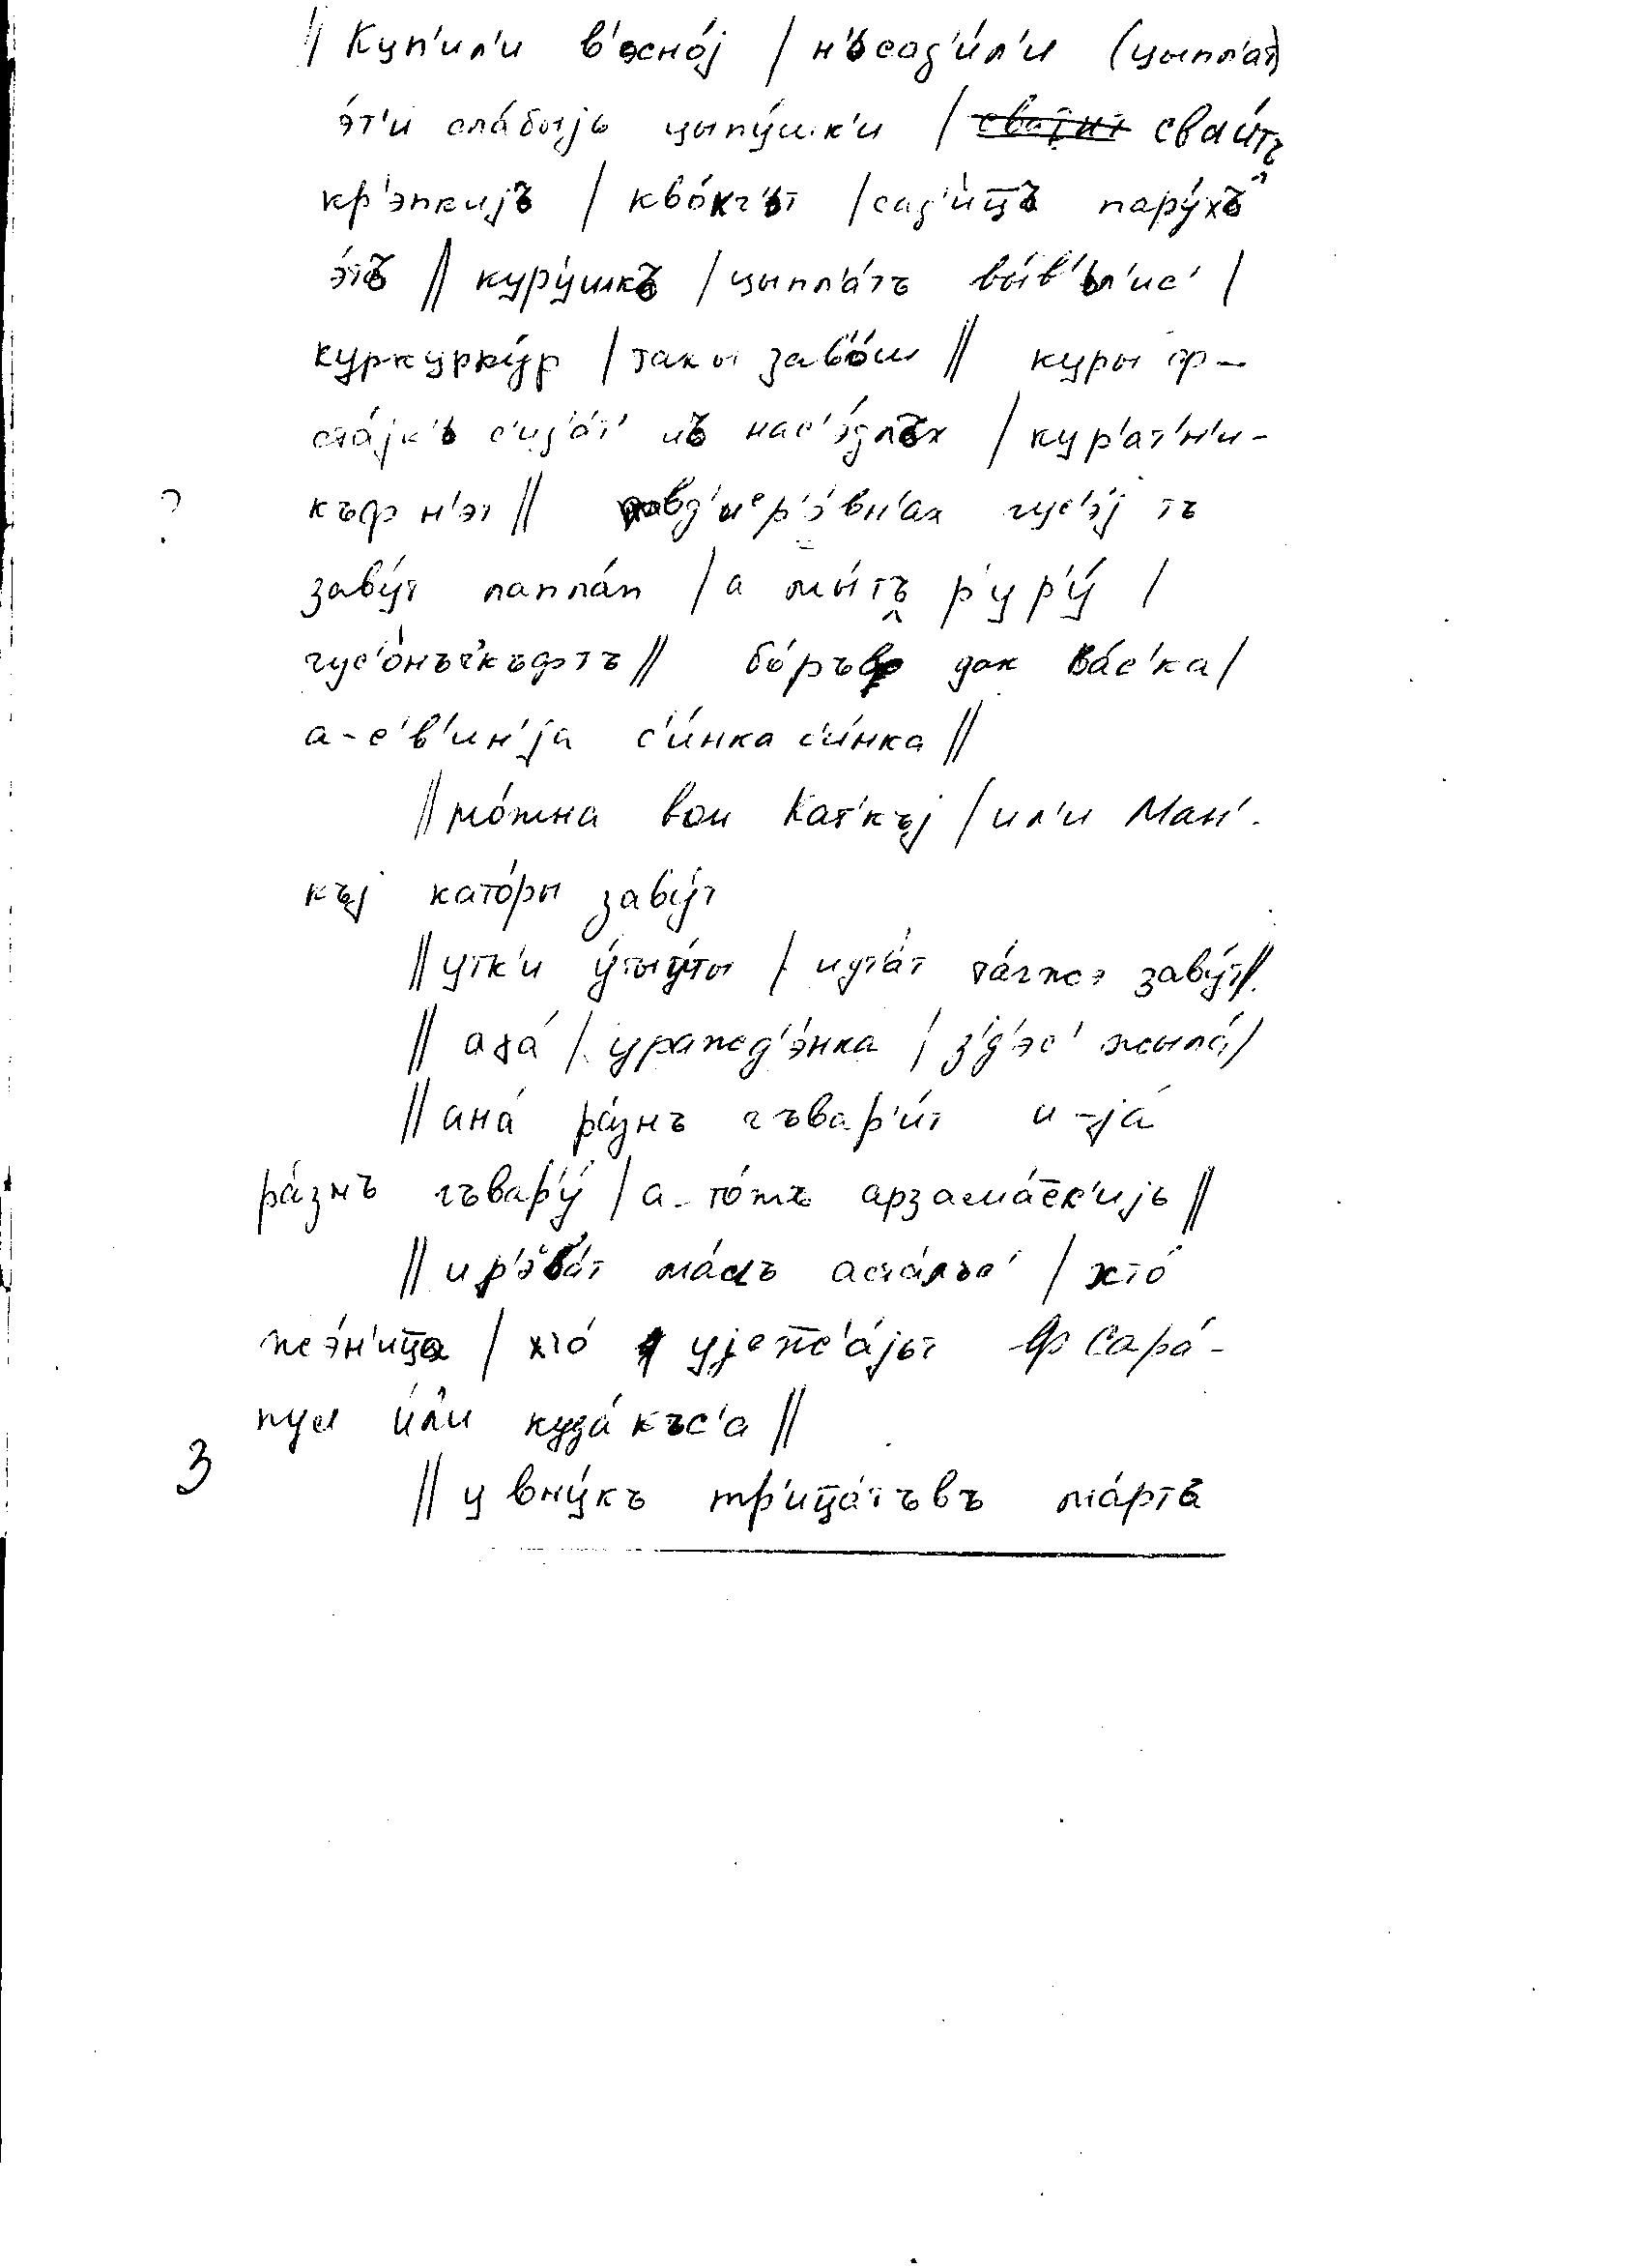 || Куп'ил'и в'эсно́j / н'ъсад'и́л'и (цыпл'ат)
э́т'и сла́быjь цыпу́шк'и / сваи́тъ
кр'э́пкиjъ / кво́кч'ът / сад'и́ц̅ъ пару́хъ
э́тъ || куру́шкъ / цыпл'а́тъ вы́в'ьл'ис' /
куркурку́р / такы заво́ш || куры ф–
ста́jк'ь с'ид'а́т' нъ нас'э́длъх / кур'ат'н'и-
? къф н'эт || вд'иер'э́вн'ах гус'э́j тъ
заву́т лапла́п / а мы́тъ р'у р'у́ /
гус'о́нъчкъфтъ || бо́ръв дак Ва́с'ка /
а-с'в'ин'jа с'и́нка с'и́нка ||
|| мо́жна вон Кат'къj / ил'и Ман'-
къj като́ры заву́т
|| утк'и у́ты у́ты / ут'а́т та́гжэ заву́т ||
|| ага́ / уражд'э́нка / з'д'эс' жыла́ /
|| ана́ ра́знъ гъвар'и́т и-jа́
ра́знъ гъвар'у́ / а-то́жъ арзама́ск'иjь ||
|| и р'эб'а́т ма́лъ аста́лъс' / хто́
жэ́н'иц̅а / хто́ уjеж̅'а́jьт ф Сара́-
пул и́л'и куда́къс'а ||
3 || у вну́къ тр'иц̅а́тъвъ ма́ртъ